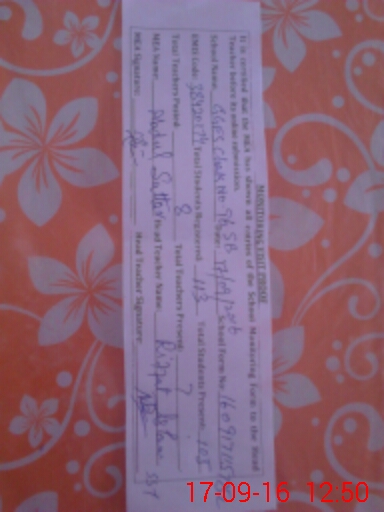 MONITORING VISIT PROOF
It is certified that the MEA has shown all entries of the School Monitoring Form to the Head
Teacher before its online submission.
School Name: GGPS Chak No 96 SB Date: 17/09/2016 School Form No: 160917115
EMIS Code: Total Students Registered: 113 Total Students Present: 105
Total Teachers Posted: 8 Total Teachers Present: 7
MEA Name: Abdul Sattar Head Teacher Name: SST
MEA Signature: Head Teacher Signature:
17-09-16 12:50